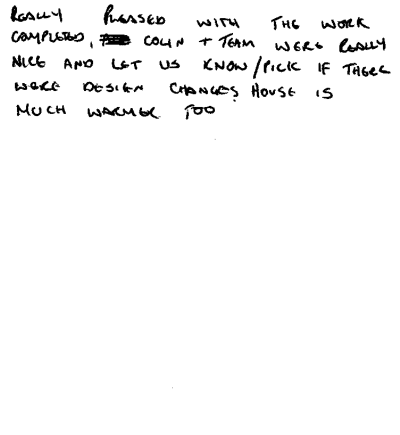 REALLY PLEASED WITH THE WORK
COMPLETED, COLIN + TEAM WERE REALLY
NICE AND LET US KNOW/PICK IF THERE
WERE DESIGN CHANGES, HOUSE IS
MUCH WARMER TOO